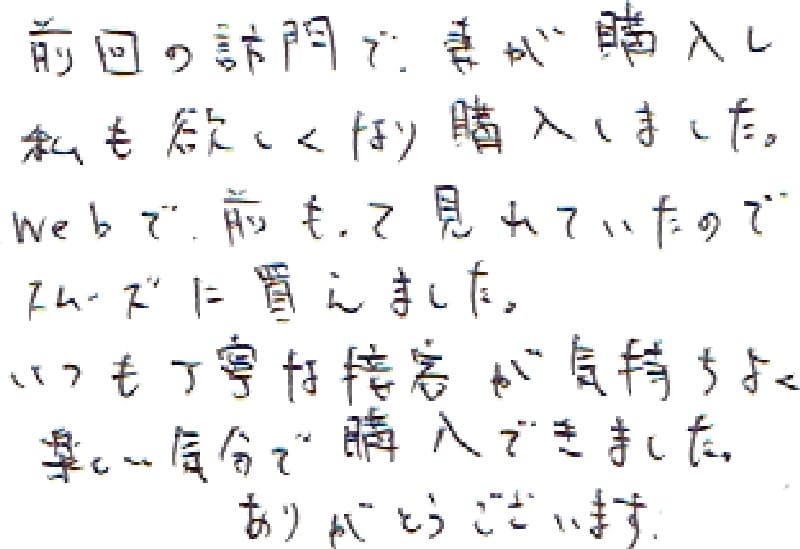 前回の訪問で、妻が購入し
私も欲しくなり購入しました。
Webで、前もって見れていたので
スムーズに買えました。
いつも丁寧な接客が気持ちよく
楽しい気分で購入できました。
ありがとうございます。